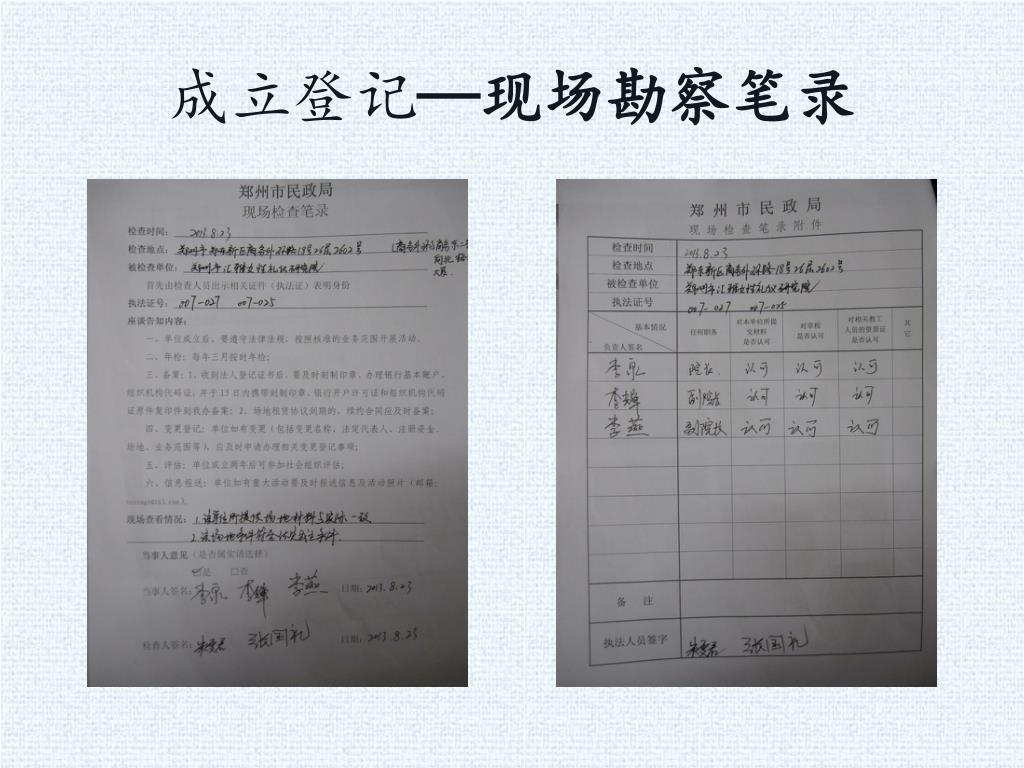 成立登记—现场勘察笔录
郑州市民政局
现场检查笔录
检查时间： 2013.8.23
检查地点： 郑州市郑东新区商务外环路18号26层2602号
被检查单位： 郑州市汇雅女性礼仪研究院
首先由检查人员出示相关证件（执法证）表明身份
执法证号： 007-027 007-025
座谈告知内容：
一、单位成立后，要遵守法律法规，按照核准的业务范围开展活动．
二、年检：每年三月按时年检；
三、备案：1、收到法人登记证书后，要及时刻制印章、办理银行基本账户、
组织机构代码证，并于15日内携带刻制印章、银行开户许可证和组织机构代码
证原件复印件到我办备案；2、场地租赁协议到期的，续约合同应及时备案；
四、变更登记：单位如有变更（包括变更名称、法定代表人、注册资金、
场地、业务范围等），应及时申请办理相关变更登记事项；
五、评估：单位成立两年后可参加社会组织评估；
六、信息报送：单位如有重大活动要及时报送信息及活动照片（邮箱：
现场查看情况：1.该单位所提供场地材料与实际一致
2.该场地条件符合
当事人意见（是否属实请选择）
☑是 □否
当事人签名： 李 李 李燕 日期：2013.8.23
检查人签名： 张国礼 日期：2013.8.23
郑州市民政局
现场检查笔录附件
检查时间 2013.8.23
检查地点 郑东新区商务外环路18号26层2602号
被检查单位 郑州市汇雅女性礼仪研究院
执法证号 007-027 007-025
基本情况 任何职务 对本单位所提交材料是否认可 对章程是否认可 对相关教工人员的资质证是否认可 其它
负责人签名
李 院长 认可 认可 认可
李 副院长 认可 认可 认可
李燕 副院长 认可 认可 认可
备 注
执法人员签字 张国礼